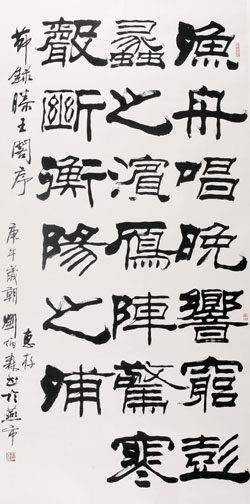 漁舟唱晚響窮彭
蠡之濱鴈陣驚寒
聲斷衡陽之浦
節錄滕王閣序
惠存
庚午歲朝劉炳森書於燕市